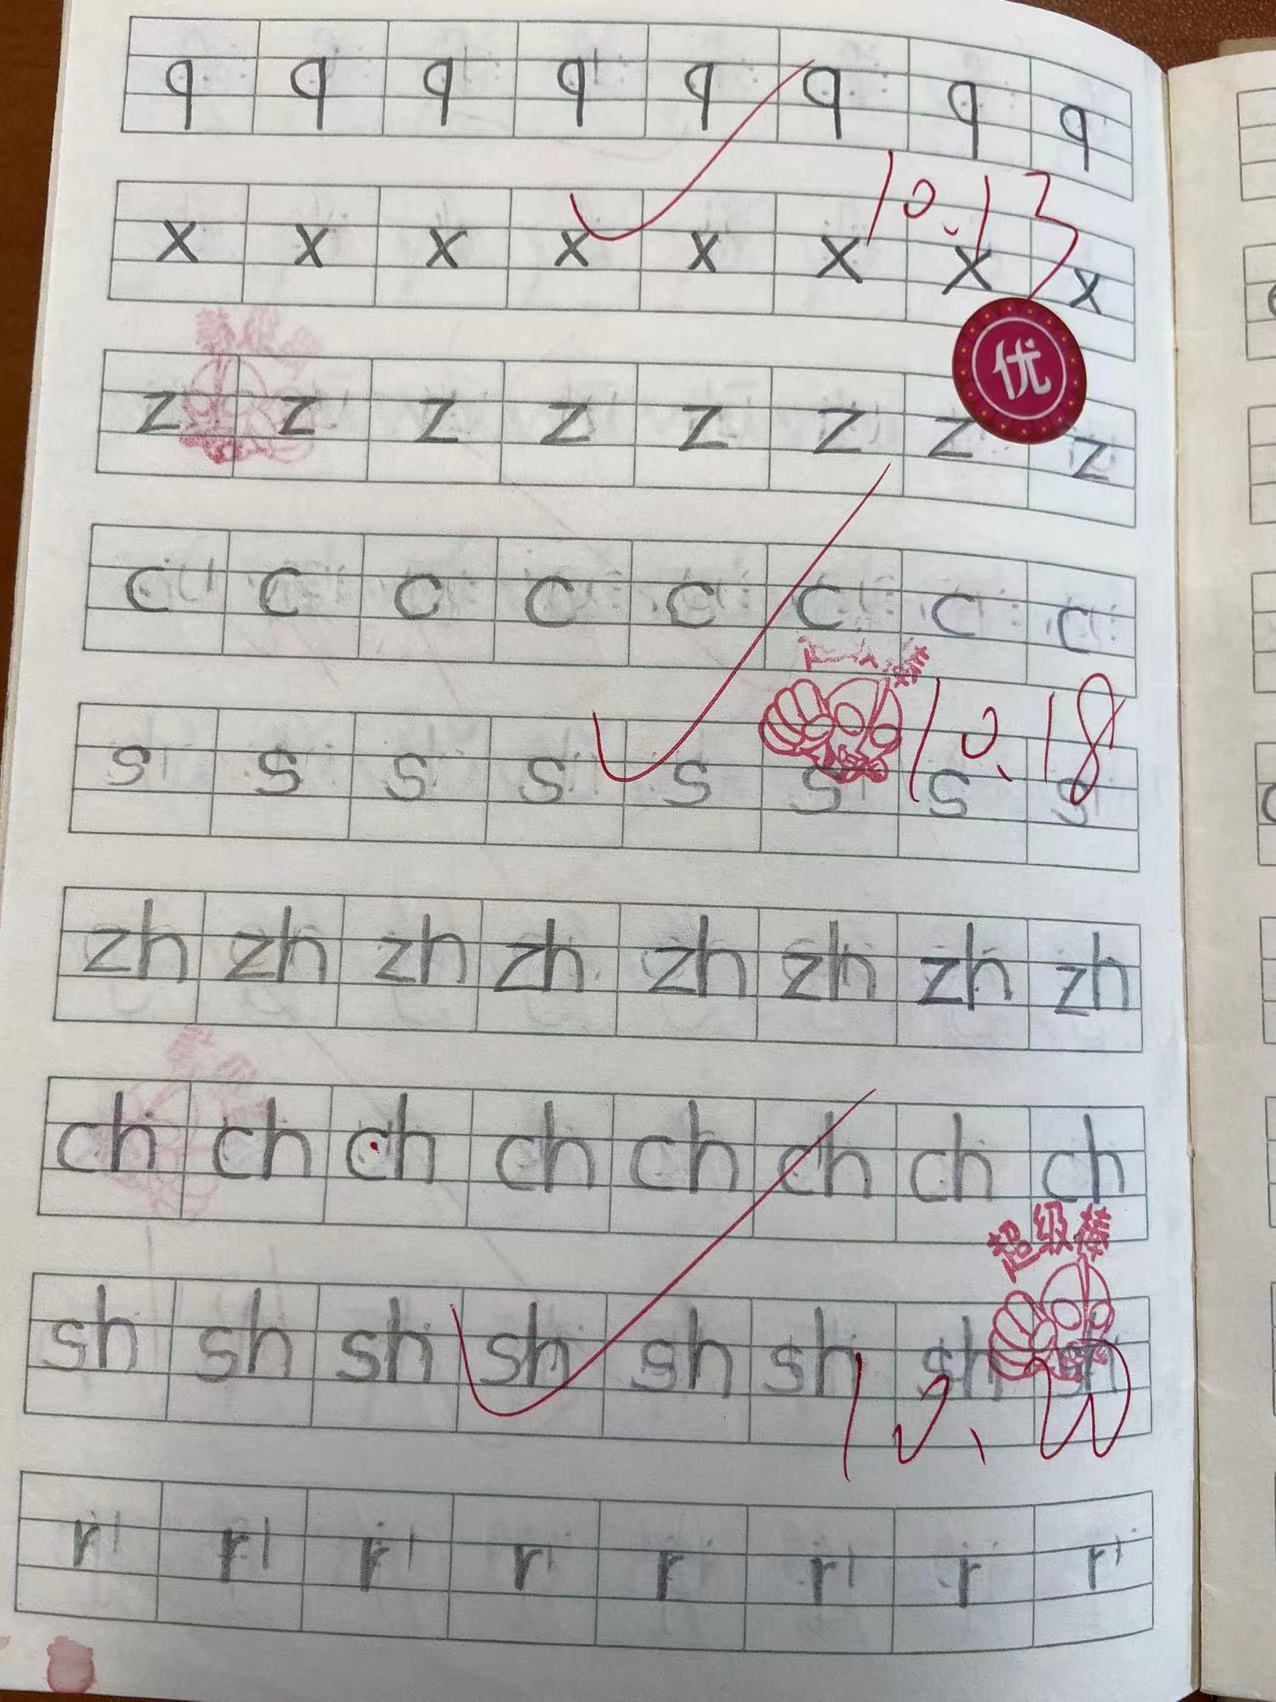 q q q q q q q q
x x x x x x x x
10.13
优
z z z z z z z z
c c c c c c c c
s s s s s s s s
10.18
zh zh zh zh zh zh zh zh
ch ch ch ch ch ch ch ch
超级棒
sh sh sh sh sh sh sh sh
10.20
r r r r r r r r